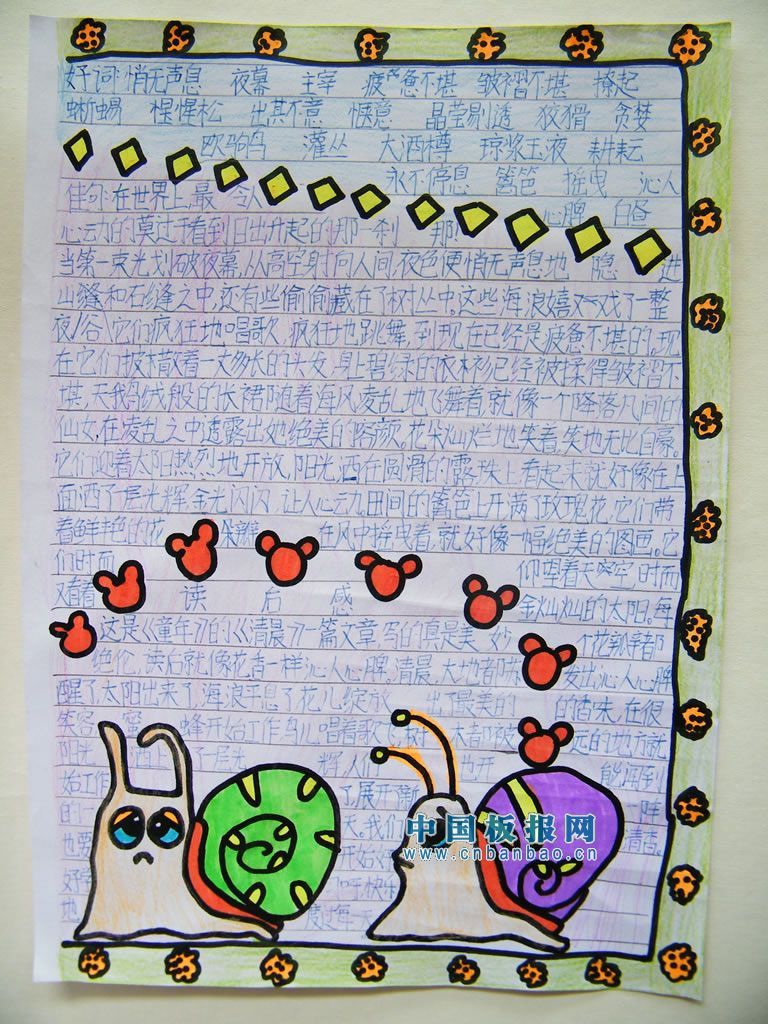 好词:悄无声息 夜幕 主宰 疲惫不堪 皱褶不堪 撩起
蜥蜴 惺惺松 出其不意 惬意 晶莹剔透 狡猾 贪婪
欧驹鸟 灌丛 大洒樽 琼浆玉液 耕耘
永不停息 篱笆 摇曳 沁人
佳句:在世界上最 令人 心脾 白昼
心动的莫过于看到日出升起的那一刹 那
当第一束光划破夜幕,从高空射向人间,夜色便悄无声息地 隐 进
山缝和石缝之中,还有些偷偷藏在了树丛中。这些海浪嬉戏了一整
夜 它们疯狂地唱歌,疯狂地跳舞,到现在已经是疲惫不堪的,现
在它们披散着一丈多长的头发,身上碧绿的衣衫已经被揉得皱褶不
堪,天鹅绒般的长裙随着海风凌乱地飞舞着,就像一个降落凡间的
仙女,在凌乱之中透露出她绝美的容颜,花朵灿烂地笑着,笑地无比自豪。
它们迎着太阳热烈地开放,阳光洒在圆滑的露珠上看起来就好像在上
面洒了层光辉,金光闪闪,让人心动。田间的篱笆上开满了玫瑰花,它们带
着鲜艳的花 朵瓣 在风中摇曳着,就好像一幅绝美的图画。它
们时而 仰望着天空 时而
又看着 读 后 感 金灿灿的太阳。每
这是《童年》的《清晨》一篇文章,写的真是美 妙 个花瓣都
绝伦,读后就像花香一样沁人心脾。清晨,大地都 发出沁人心脾
醒了,太阳出来了,海浪平息了,花儿绽放 出了最美的 的香味,在很
笑容, 蜂开始工作,鸟儿唱着歌 都 远的地方就
阳光 上 了层 人们 也开 能闻到
始工作 了,展开 味
的 天。我们 清香。
也要 开始
好 快乐
地 度过每 天
中国板报网
www.cnbanbao.cn